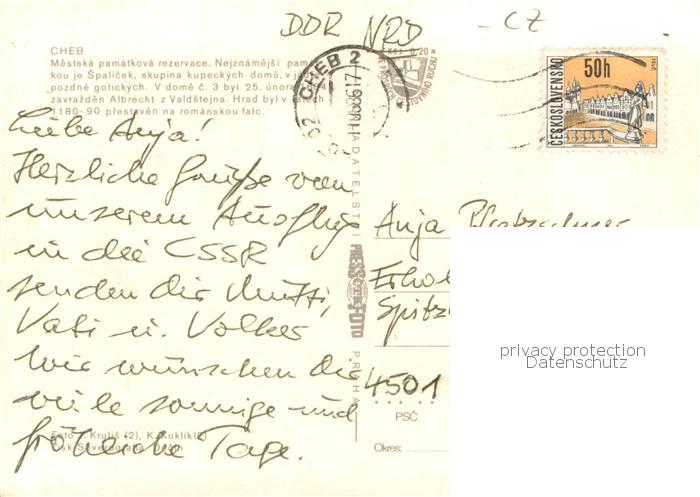 DDR NRD - CZ
CHEB
Městská památková rezervace. Nejznámější pam
kou je Špalíček, skupina kupeckých domů, v já
pozdně gotických. V domě č. 3 byl 25. února
zavražděn Albrecht z Valdštejna. Hrad byl v
1180-90 přestavěn na románskou falc.
CHEB 2
Kčs 0,20
50h
ČESKOSLOVENSKO
Liebe Anja!
Herzliche Grüße von
unserem Ausflug
in die CSSR
senden dir Mutti,
Vati u. Volker
Wir wünschen dir
viele sonnige und
fröhliche Tage.
Foto J. Kruliš (2), K. Kuklík (2)
Tisk Severografia Děčín
NAKLADATELSTVÍ
PRESSFOTO
PRAHA
Anja
Erhol
Spitz
4501
PSČ
Okres:
privacy protection
Datenschutz